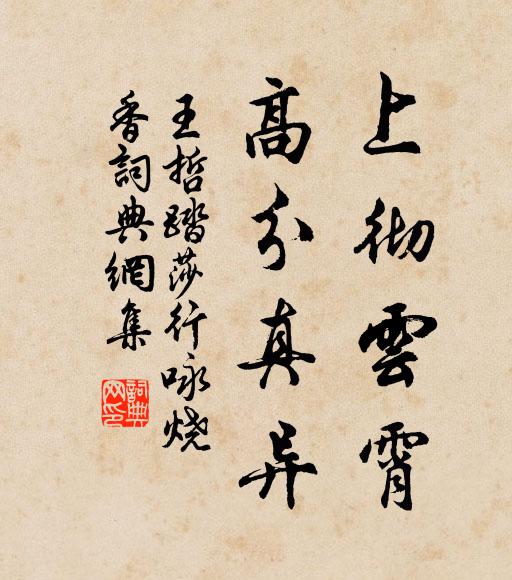 上彻雲霄
高分真异
王哲踏莎行咏烧
香詞典網集
詞典
网印